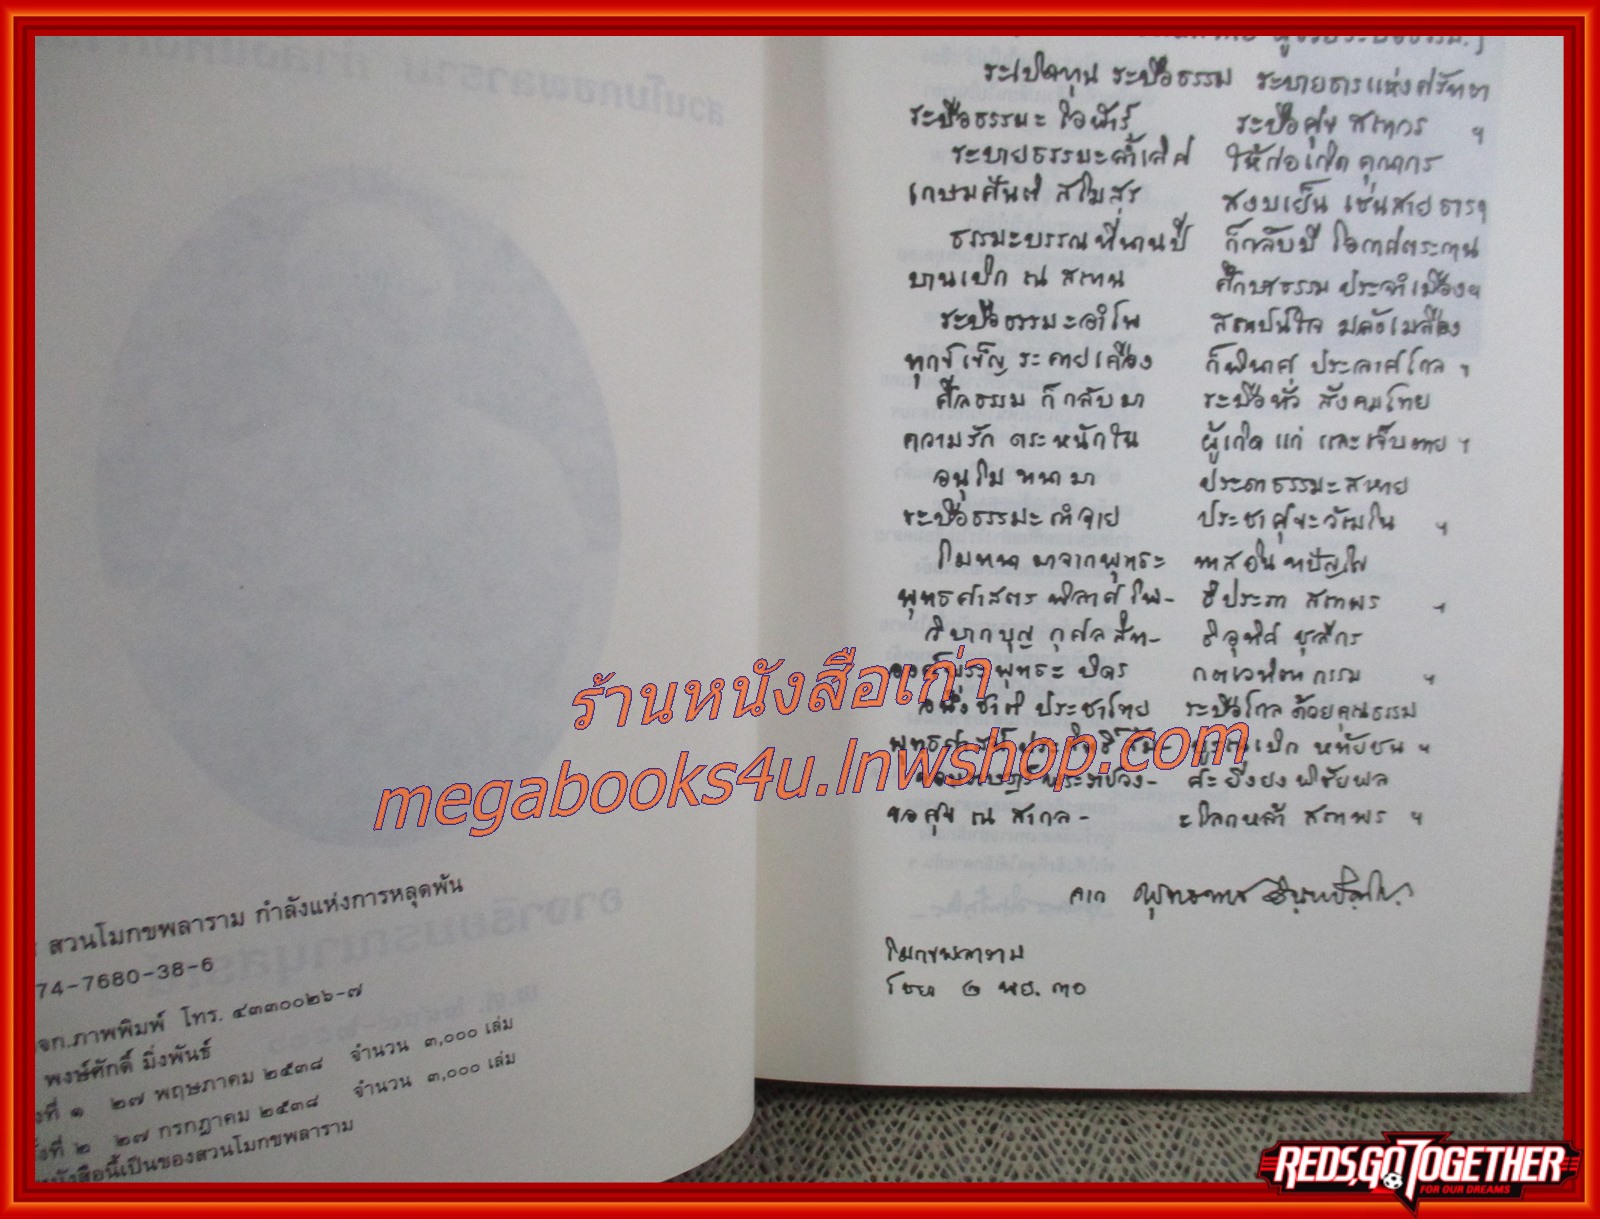 สวนโมกขพลาราม กำลังแห่งการหลุดพ้น
74-7680-38-6
จก.ภาพพิมพ์ โทร. ๔๓๓๐๐๒๖-๗
พงษ์ศักดิ์ มิ่งพันธ์
ที่ ๑ ๒๗ พฤษภาคม ๒๕๓๘ จำนวน ๓,๐๐๐ เล่ม
ที่ ๒ ๒๗ กรกฎาคม ๒๕๓๘ จำนวน ๓,๐๐๐ เล่ม
หนังสือนี้เป็นของสวนโมกขพลาราม
ระเปิดทุน ระบือธรรม ระบายธารแห่งศรัทธา
ระบือธรรมะ โอฬาร์ ระบือศุข สถาวร ฯ
ระบายธรรมะล้ำเลิศ ให้ก่อเกิด คุณากร
เกษมศันติ์ สโมสร สงบเย็น เช่นสายธารฯ
ธรรมะบรรณที่นานปี ก็กลับมี โอกาศตระการ
บานเบิก ณ สถาน ศึกษาธรรม ประจำเมืองฯ
ระบือธรรมะอำไพ สถาปน์ใจ มลังเมลือง
ทุกข์เข็ญ ระคายเคือง ก็พินาศ ประลาศไกล ฯ
ศีลธรรม ก็กลับมา ระบือทั่ว สังคมไทย
ความรัก ตระหนักใน ผู้เกิด แก่ และเจ็บตาย ฯ
อนุโมทนามา ประดาธรรมะสหาย
ระบือธรรมะกำจาย ประชาศุขะวัฒใน ฯ
โมทนา มาจากพุทธะ ทาสอินทปัญโญ
พุทธศาสตร พิลาศโพ- ธิประภา สถาพร ฯ
วิบากบุญ กุศล
พุทธะ บิดร กตเวทิตกรรม ฯ
ประชาไทย ระบือไกล ด้วยคุณธรรม
เบิก หทัยชน ฯ
ศะยิ่งยง พิชัยพล
ขอศุข ณ สากล- ะโลกหล้า สถาพร ฯ
จาก พุทธทาส อินทปัญโญ
โมกขพลาราม
ไชยา ๒ พย. ๓๐
ร้านหนังสือเก่า
megabooks4u.lnwshop.com
REDS,GO TOGETHER
FOR OUR DREAMS